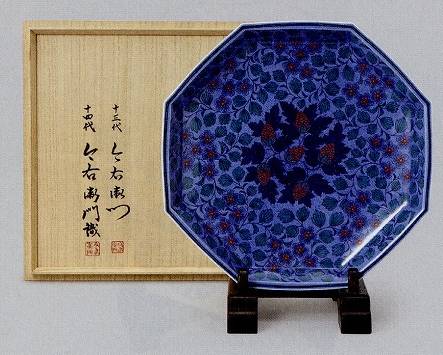 十三代 今右衛門
十四代 今右衛門識